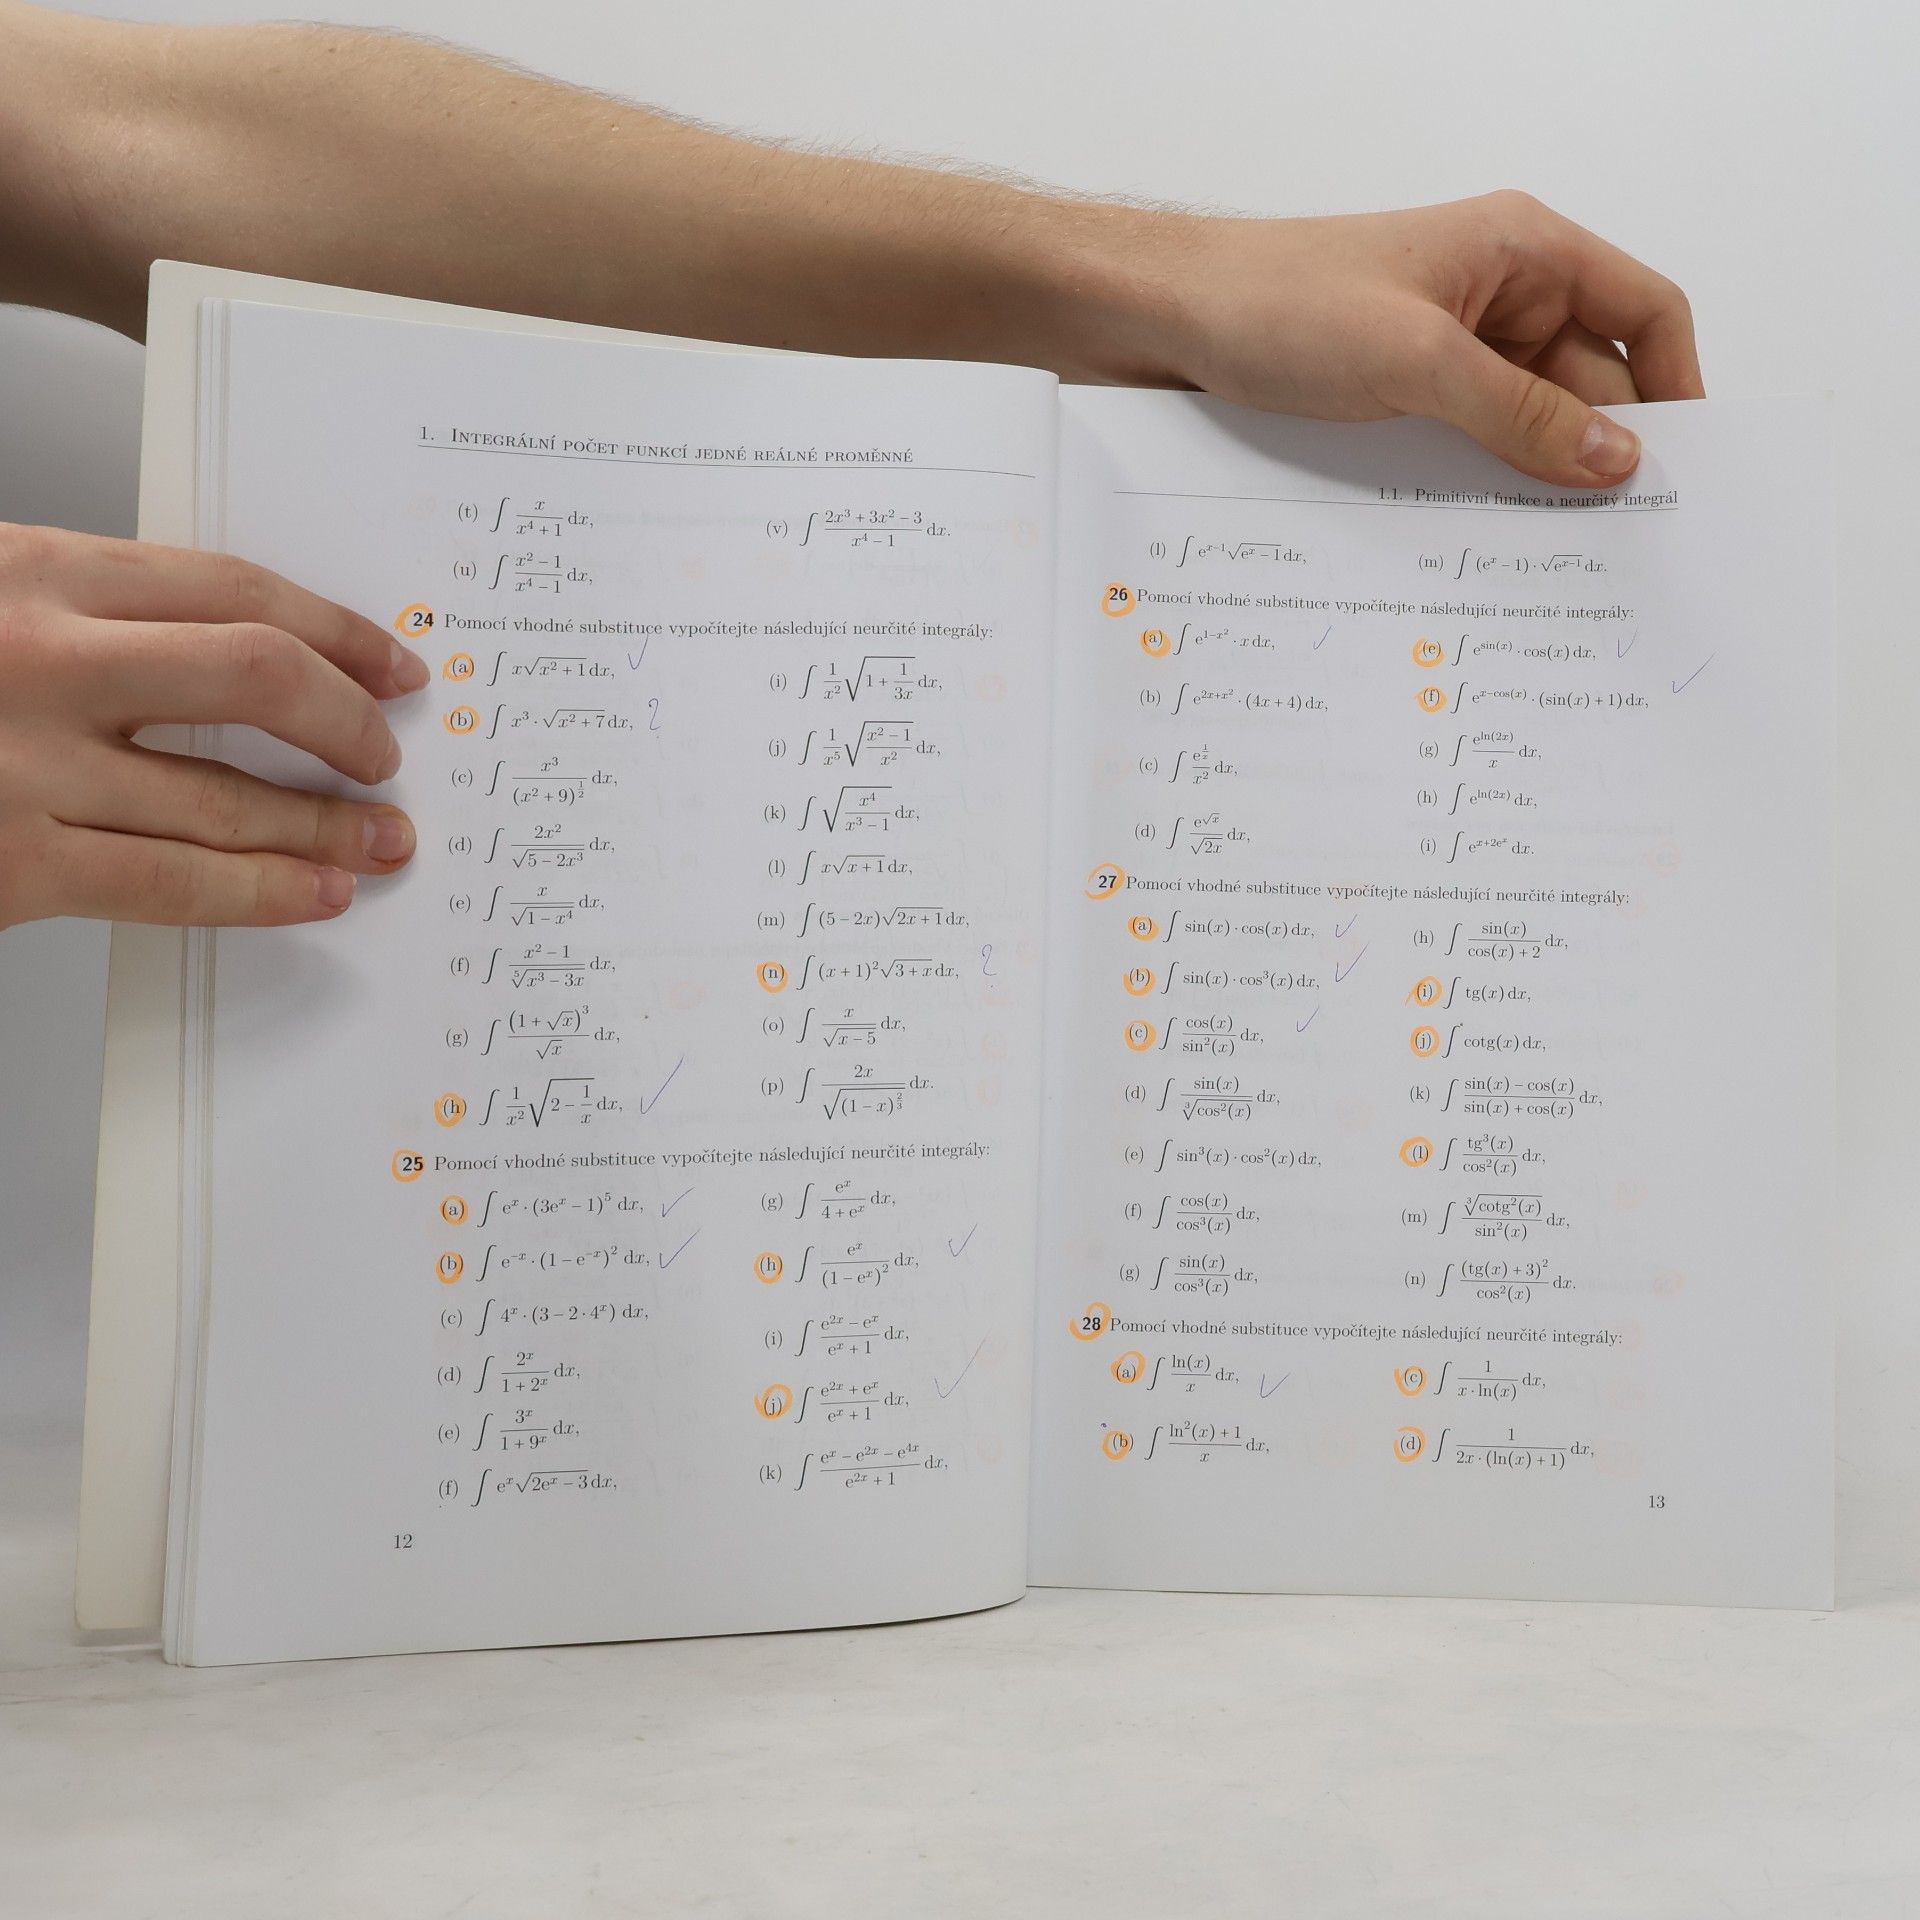 1. Integrální počet funkcí jedné reálné proměnné
(t) ∫ x/(x⁴ + 1) dx,
(u) ∫ (x² − 1)/(x⁴ − 1) dx,
(v) ∫ (2x³ + 3x² − 3)/(x⁴ − 1) dx.
24 Pomocí vhodné substituce vypočítejte následující neurčité integrály:
(a) ∫ x√(x² + 1) dx, ✓
(b) ∫ x³ · √(x² + 7) dx, ?
(c) ∫ x³/(x² + 9)^(1/2) dx,
(d) ∫ 2x²/√(5 − 2x³) dx,
(e) ∫ x/√(1 − x⁴) dx,
(f) ∫ (x² − 1)/⁵√(x³ − 3x) dx,
(g) ∫ (1 + √x)³/√x dx,
(h) ∫ 1/x² √(2 − 1/x) dx, ✓
(i) ∫ 1/x² √(1 + 1/(3x)) dx,
(j) ∫ 1/x⁵ √((x² − 1)/x²) dx,
(k) ∫ √(x⁴/(x³ − 1)) dx,
(l) ∫ x√(x + 1) dx,
(m) ∫ (5 − 2x)√(2x + 1) dx,
(n) ∫ (x + 1)²√(3 + x) dx, ?
(o) ∫ x/√(x − 5) dx,
(p) ∫ 2x/√((1 − x)^(2/3)) dx.
25 Pomocí vhodné substituce vypočítejte následující neurčité integrály:
(a) ∫ eˣ · (3eˣ − 1)⁵ dx, ✓
(b) ∫ e⁻ˣ · (1 − e⁻ˣ)² dx, ✓
(c) ∫ 4ˣ · (3 − 2 · 4ˣ) dx,
(d) ∫ 2ˣ/(1 + 2ˣ) dx,
(e) ∫ 3ˣ/(1 + 9ˣ) dx,
(f) ∫ eˣ√(2eˣ − 3) dx,
(g) ∫ eˣ/(4 + eˣ) dx,
(h) ∫ eˣ/(1 − eˣ)² dx, ✓
(i) ∫ (e²ˣ − eˣ)/(eˣ + 1) dx,
(j) ∫ (e²ˣ + eˣ)/(eˣ + 1) dx, ✓
(k) ∫ (eˣ − e²ˣ − e⁴ˣ)/(e²ˣ + 1) dx,
12
1.1. Primitivní funkce a neurčitý integrál
(l) ∫ eˣ⁻¹√(eˣ − 1) dx,
(m) ∫ (eˣ − 1) · √(eˣ⁻¹) dx.
26 Pomocí vhodné substituce vypočítejte následující neurčité integrály:
(a) ∫ e^(1−x²) · x dx, ✓
(b) ∫ e^(2x+x²) · (4x + 4) dx,
(c) ∫ e^(1/x)/x² dx,
(d) ∫ e^(√x)/√(2x) dx,
(e) ∫ e^(sin(x)) · cos(x) dx, ✓
(f) ∫ e^(x−cos(x)) · (sin(x) + 1) dx, ✓
(g) ∫ e^(ln(2x))/x dx,
(h) ∫ e^(ln(2x)) dx,
(i) ∫ e^(x+2eˣ) dx.
27 Pomocí vhodné substituce vypočítejte následující neurčité integrály:
(a) ∫ sin(x) · cos(x) dx, ✓
(b) ∫ sin(x) · cos³(x) dx, ✓
(c) ∫ cos(x)/sin²(x) dx, ✓
(d) ∫ sin(x)/³√(cos²(x)) dx,
(e) ∫ sin³(x) · cos²(x) dx,
(f) ∫ cos(x)/cos³(x) dx,
(g) ∫ sin(x)/cos³(x) dx,
(h) ∫ sin(x)/(cos(x) + 2) dx,
(i) ∫ tg(x) dx,
(j) ∫ cotg(x) dx,
(k) ∫ (sin(x) − cos(x))/(sin(x) + cos(x)) dx,
(l) ∫ tg³(x)/cos²(x) dx,
(m) ∫ ³√(cotg²(x))/sin²(x) dx,
(n) ∫ (tg(x) + 3)²/cos²(x) dx.
28 Pomocí vhodné substituce vypočítejte následující neurčité integrály:
(a) ∫ ln(x)/x dx, ✓
(b) ∫ (ln²(x) + 1)/x dx,
(c) ∫ 1/(x · ln(x)) dx,
(d) ∫ 1/(2x · (ln(x) + 1)) dx,
13